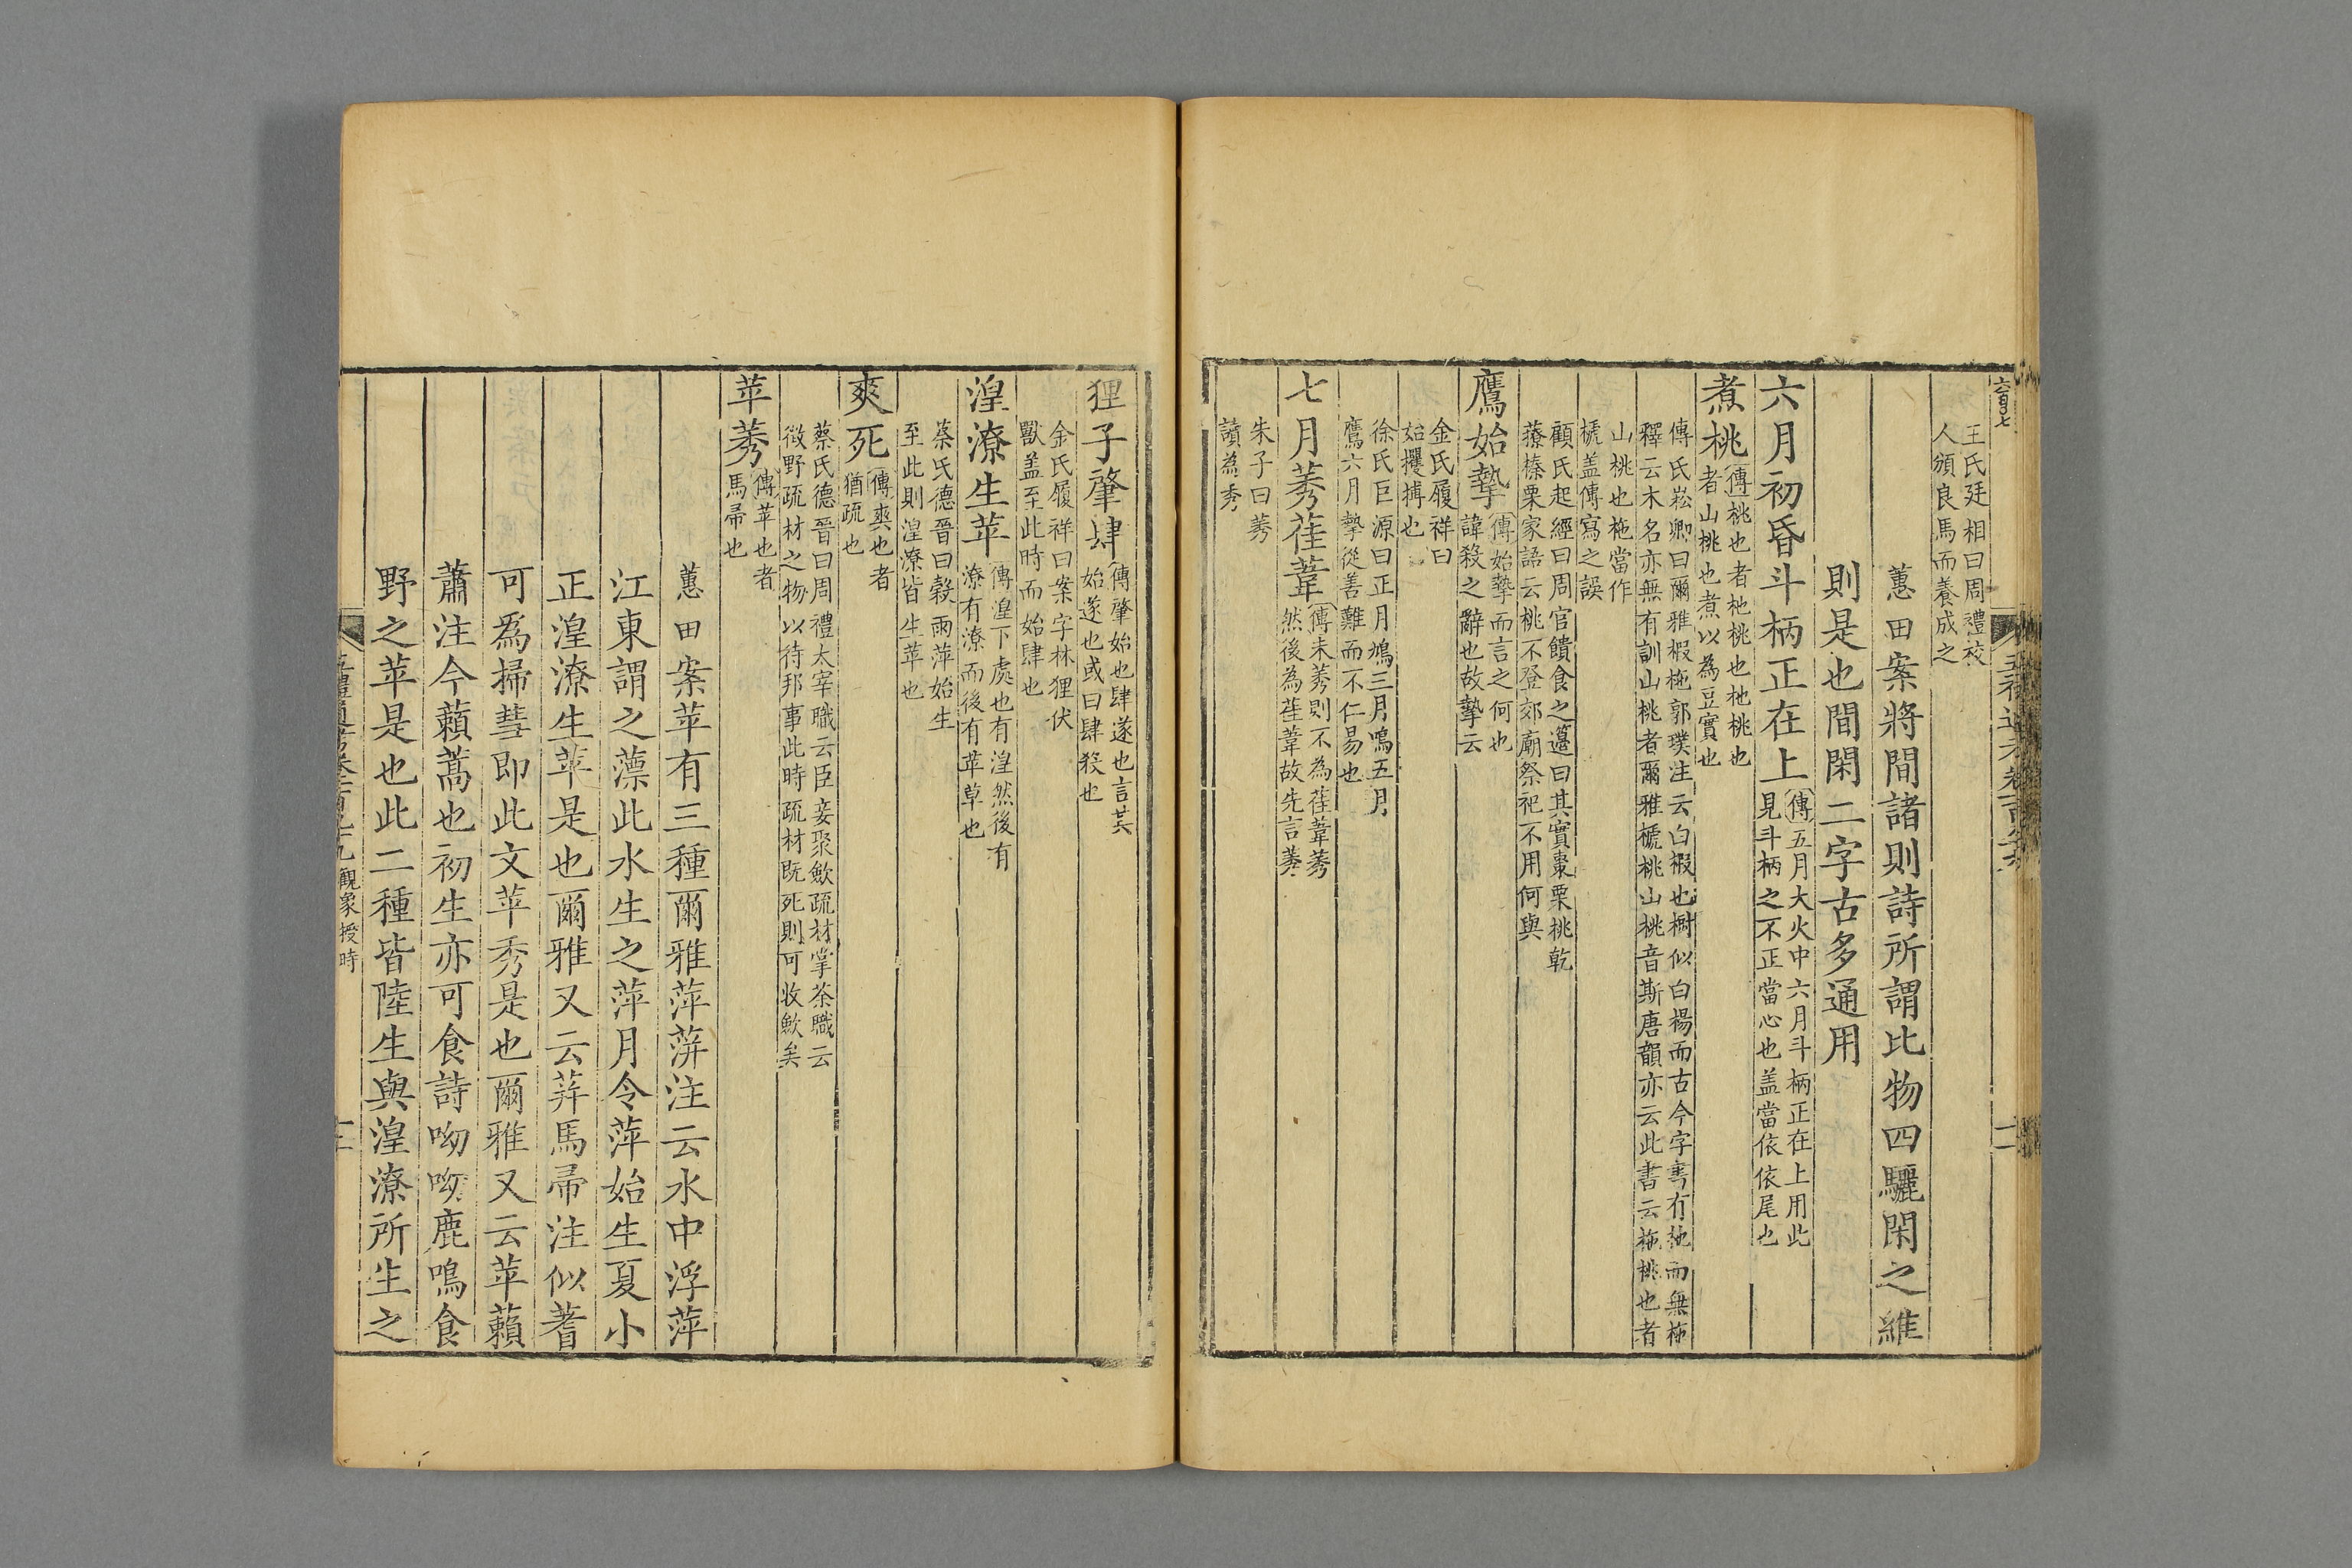 王氏廷相曰周禮校
人頒良馬而養成之
蕙田案將閒諸則詩所謂比物四驪閑之維
則是也閒閑二字古多通用
六月初昏斗柄正在上
傳五月大火中六月斗柄正在上用此
見斗柄之不正當心也蓋當依依尾也
煮桃
傳桃也者杝桃也杝桃也
者山桃也煮以為豆實也
傳氏崧卿曰爾雅椴柂郭璞注云白椴也樹似白楊而古今字書有杝而無柂
釋云木名亦無有訓山桃者爾雅榹桃山桃音斯唐韻亦云此書云柂桃也者
山桃也柂當作
榹盖傳寫之誤
顧氏起經曰周官饋食之籩曰其實棗栗桃乾
䕩榛栗家語云桃不登郊廟祭祀不用何與
鷹始摯
傳始摯而言之何也
諱殺之辭也故摯云
金氏履祥曰
始攫搏也
徐氏巨源曰正月鳩三月鳴五月
鷹六月摯從善難而不仁易也
七月莠雚葦
傳未莠則不為雚葦莠
然後為雚葦故先言莠
朱子曰莠
讀為秀
狸子肇肆
傳肇始也肆遂也言其
始遂也或曰肆殺也
金氏履祥曰案字林狸伏
獸盖至此時而始肆也
湟潦生苹
傳湟下處也有湟然後有
潦有潦而後有苹草也
蔡氏德晉曰穀雨萍始生
至此則湟潦皆生苹也
爽死
傳爽也者
猶疏也
蔡氏德晉曰周禮太宰職云臣妾聚歛疏材掌荼職云
徵野疏材之物以待邦事此時疏材既死則可收歛矣
苹莠
傳苹也者
馬帚也
蕙田案苹有三種爾雅萍蓱注云水中浮萍
江東謂之薸此水生之萍月令萍始生夏小
正湟潦生苹是也爾雅又云荓馬帚注似蓍
可為掃彗即此文苹秀是也爾雅又云苹藾
蕭注今藾蒿也初生亦可食詩呦呦鹿鳴食
野之苹是也此二種皆陸生與湟潦所生之
觀象授時